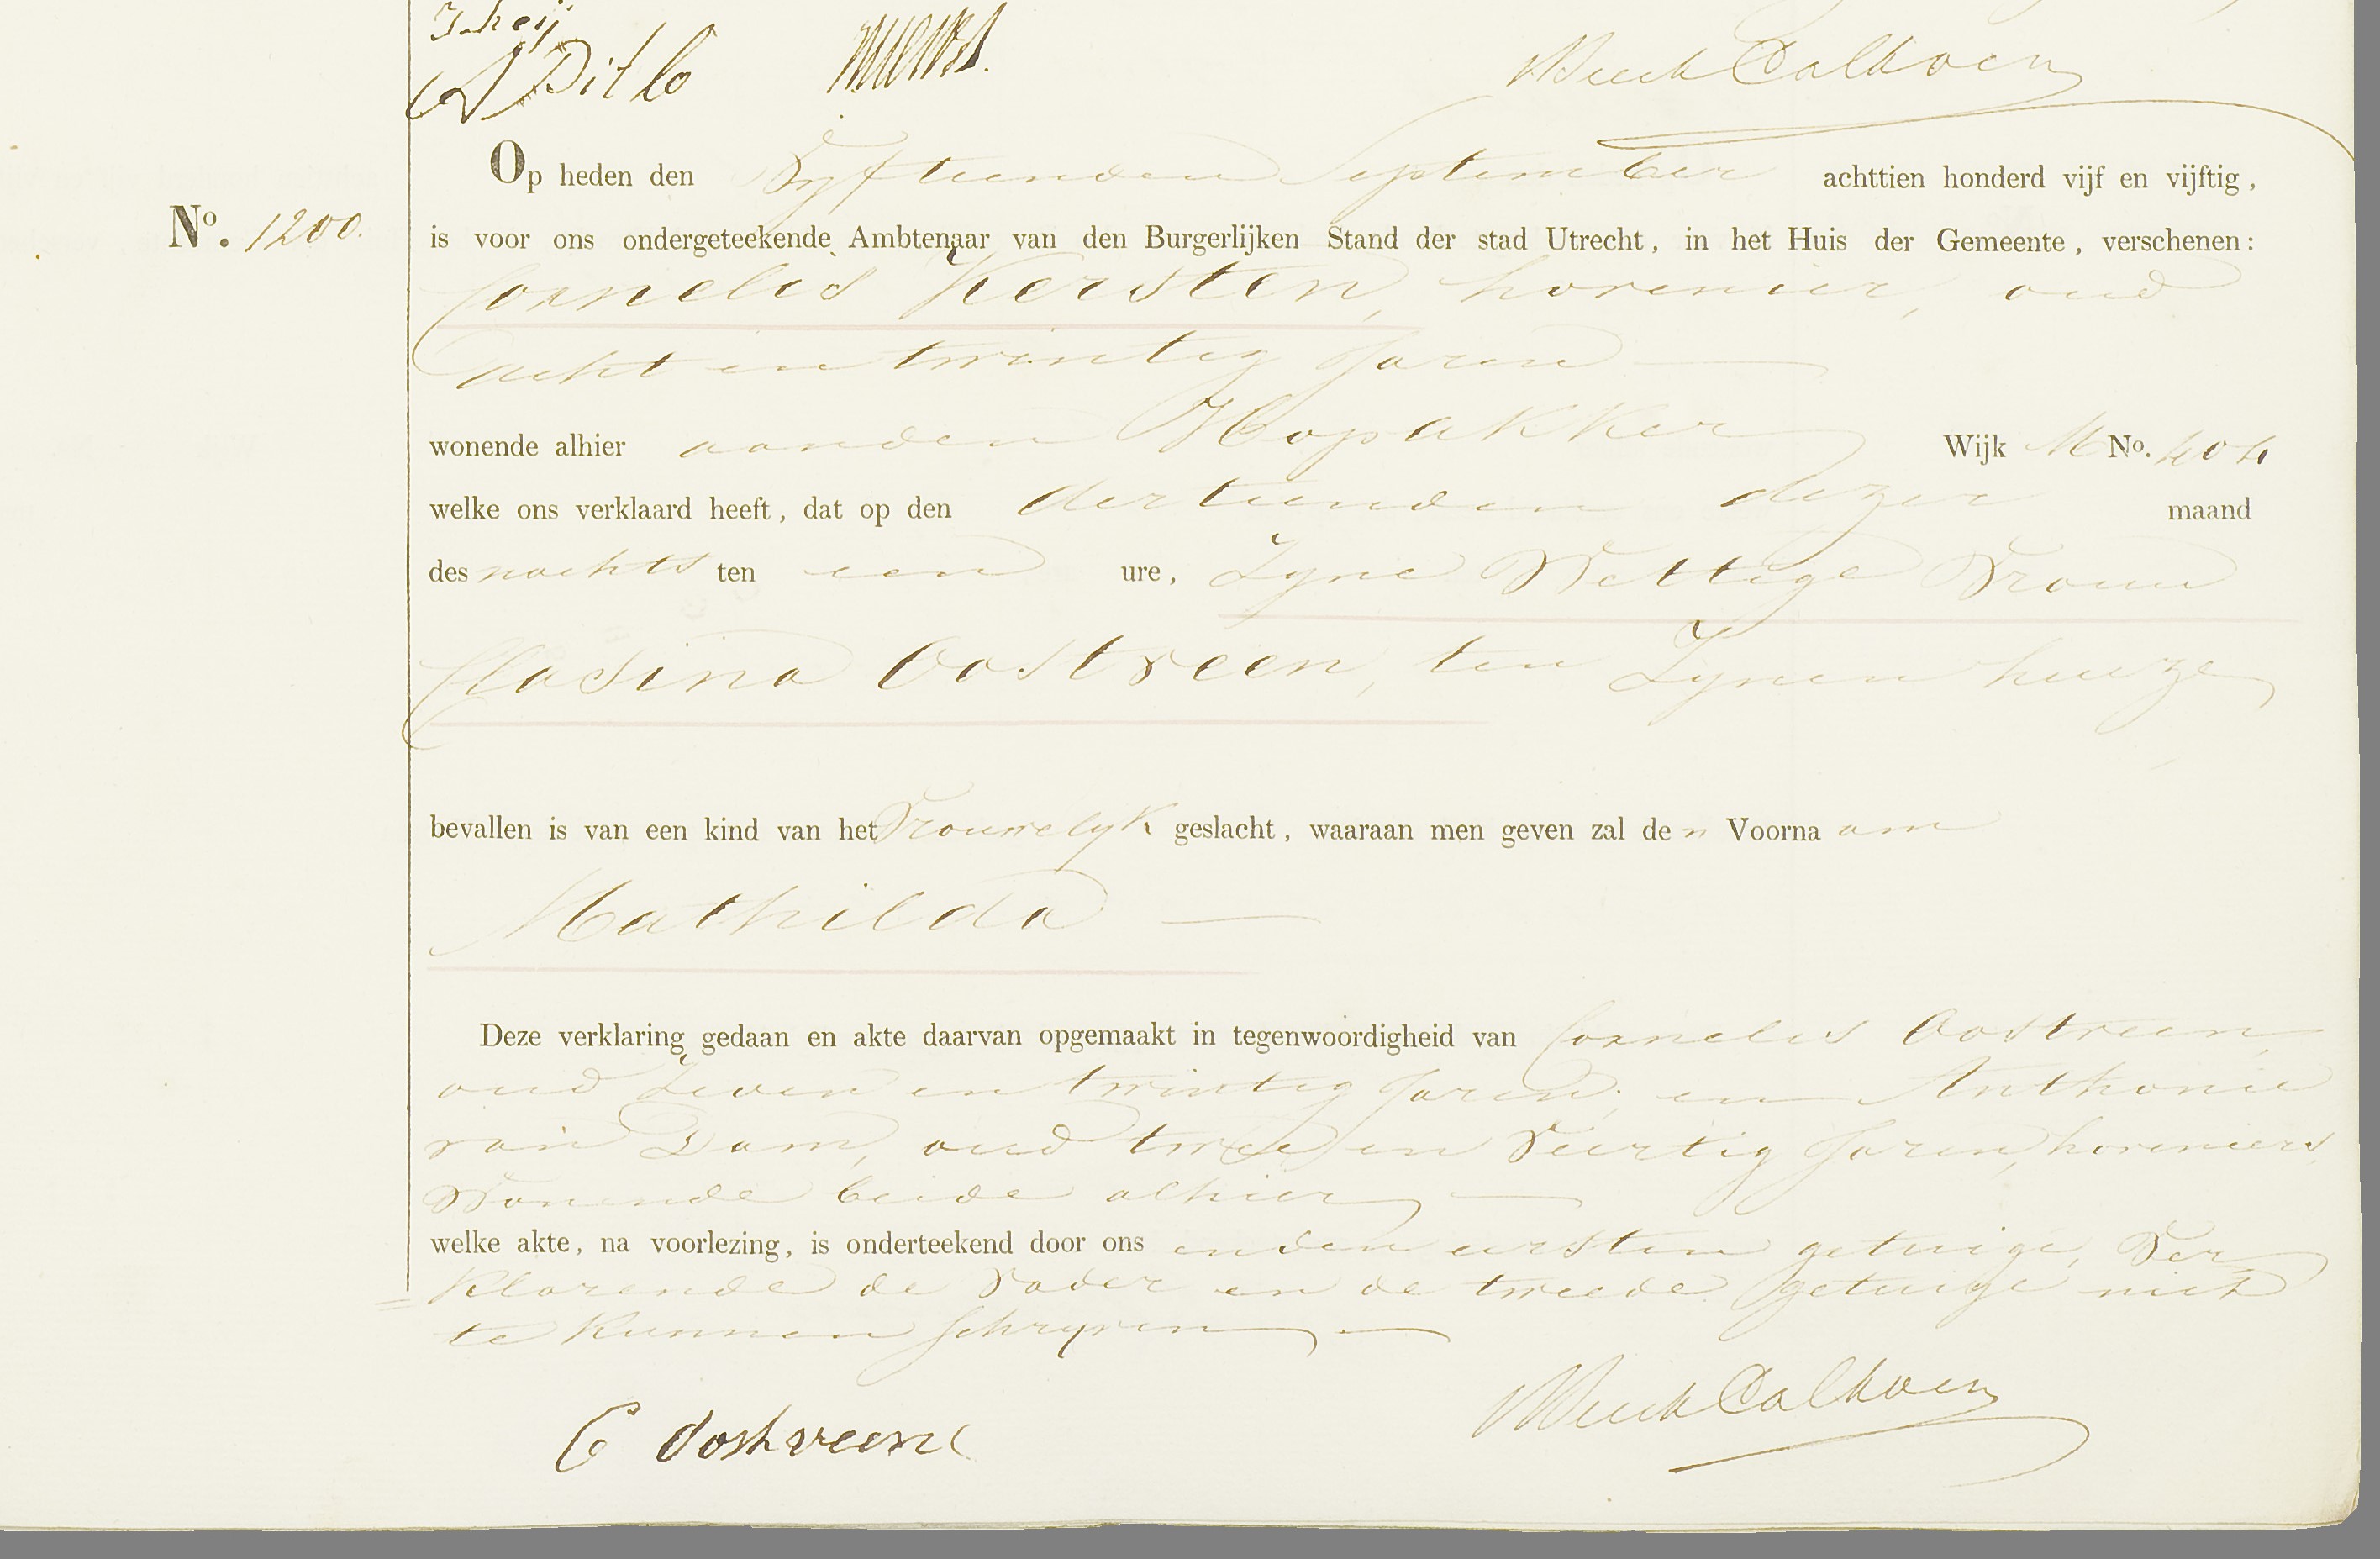 A Ditlo
Op heden den Vyftienden September achttien honderd vijf en vijftig,
No. 1200.
is voor ons ondergeteekende Ambtenaar van den Burgerlijken Stand der stad Utrecht, in het Huis der Gemeente, verschenen:
Cornelis Kersten, hovenier, oud
acht en twintig Jaren —
wonende alhier aan den Hopakker Wijk M No. 404
welke ons verklaard heeft, dat op den dertienden dezer maand
des nachts ten een ure, Zyne Wettige Vrouw
Clasina Oostveen, ten Zynen huize,
bevallen is van een kind van het Vrouwelyk geslacht, waaraan men geven zal den Voornaam
Mathilda —
Deze verklaring gedaan en akte daarvan opgemaakt in tegenwoordigheid van Cornelis Oostveen,
oud Zeven en twintig Jaren, en Anthonie
van Dam, oud twee en Veertig Jaren, hoveniers,
Wonende beide alhier, —
welke akte, na voorlezing, is onderteekend door ons en den eersten getuige, Ver
klarende de Vader en de tweede getuige niet
te kunnen schryven, —
C Oostveen